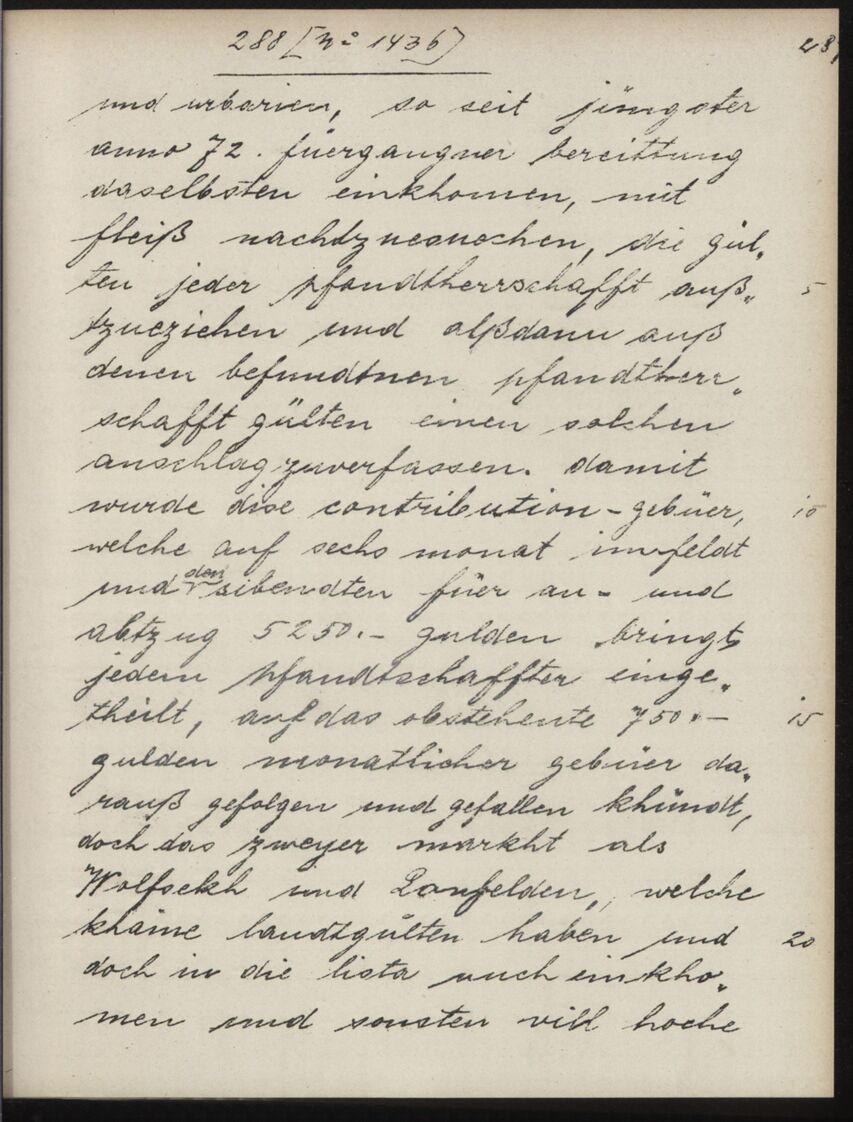 288 [No 1436]
und urbarien, so seit jüngster
anno 72. füergangner bereittung
daselbsten einkhomen, mit
fleiß nachdzuesuechen, die gül„
ten jeder pfandtherrschafft auß„ 5
tzueziehen und alßdann auß
denen befundtnen pfandtherr„
schafft gülten einen solchen
anschlag zuverfassen. damit
wurde dise contribution-gebüer, 10
welche auf sechs monat im feldt
und den sibendten füer an- und
abtzug 5250.- gulden bringt,
jedem pfandtschaffter einge„
theilt, auf das obstehente 750.- 15
gulden monatlicher gebüer da„
rauß gefolgen und gefallen khündt,
doch das zweyer markht als
Wolfsekh und Zanfelden, welche
khaine landtgülten haben und 20
doch in die lista auch einkho„
men und sonsten vill hoche